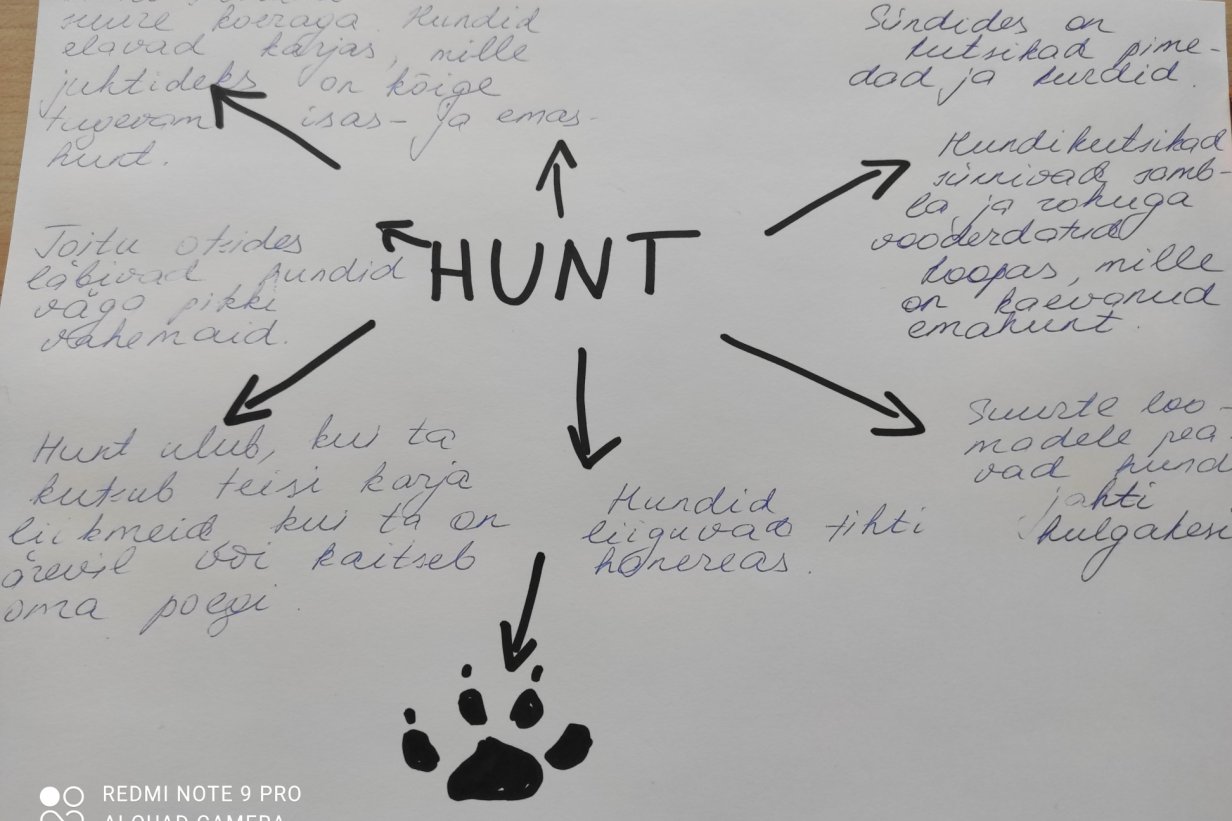 suure koeraga. Hundid
elavad karjas, mille
juhtideks on kõige
tugevam isas- ja emas-
hunt.
Sündides on
kutsikad pime-
dad ja kurdid.
Hundikutsikad
sünnivad samb-
la ja rohuga
vooderdatud
koopas, mille
on kaevanud
emahunt.
HUNT
Toitu otsides
läbivad hundid
väga pikki
vahemaid.
Suurte loo-
madele pea
vad hund
jahti
kulgakesi
Hunt ulub, kui ta
kutsub teisi karja
liikmeid kui ta on
ärevil või kaitseb
oma poegi.
Hundid
liiguvad tihti
hanereas.
REDMI NOTE 9 PRO
AI QUAD CAMERA